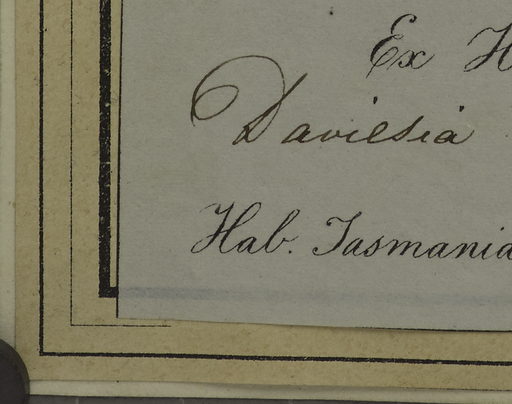 Ex H
Daviesia
Hab. Tasmania